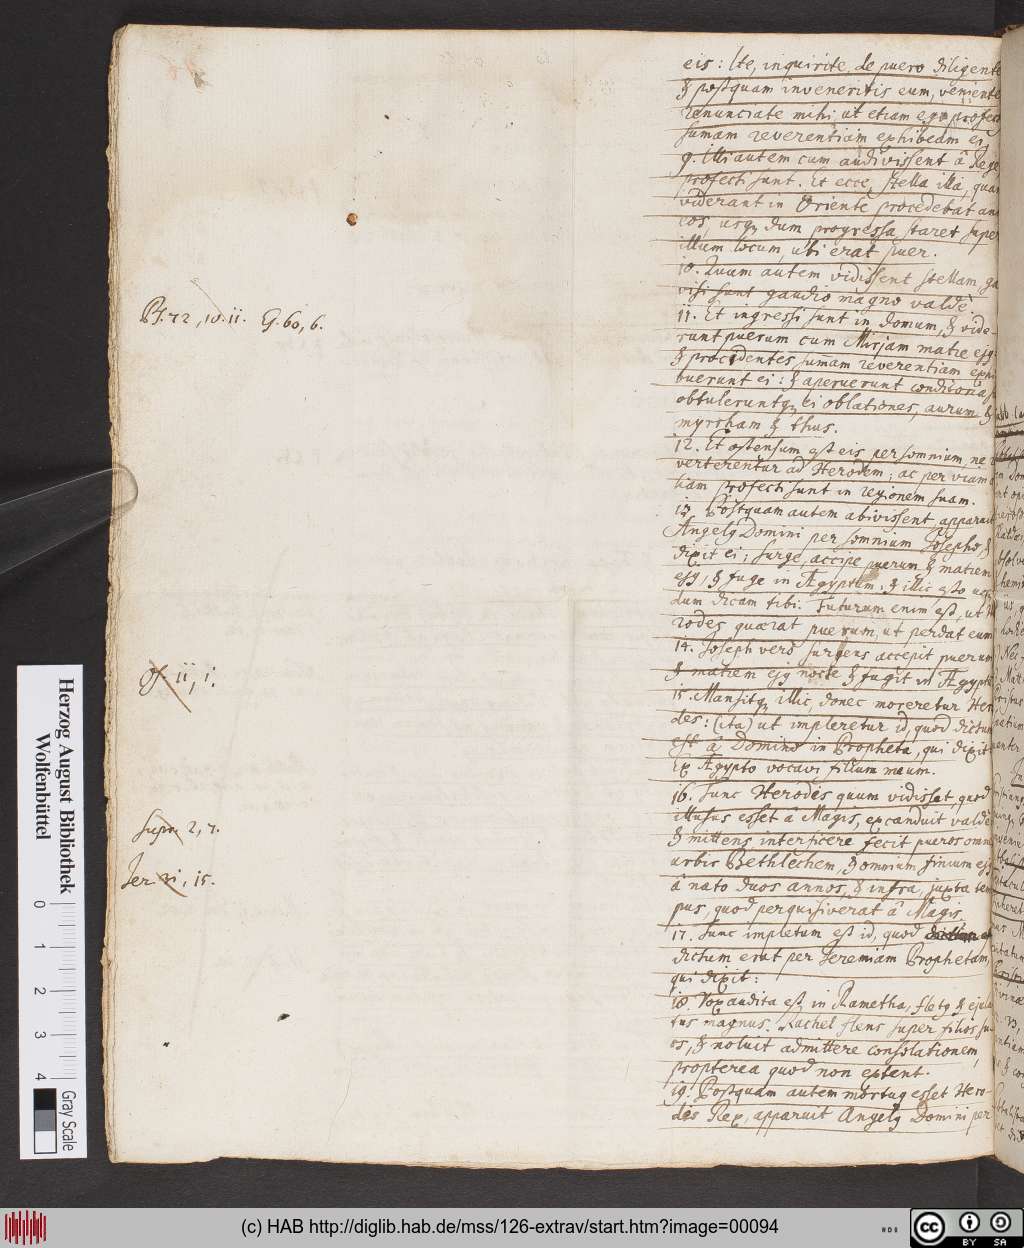 eis: Ite, inquirite de puero diligente
& postquam inveneritis eum, veniente
renunciate mihi: ut etiam ego profec
sumam reverentiam exhibeam ei
9. Illi autem cum audivissent à Rege
profecti sunt. Et ecce, stella illa, quam
viderant in Oriente procedebat an
eos, usqꝫ dum progressa staret super
illum locum, ubi erat puer.
10. Quum autem vidissent stellam, ga
visi sunt gaudio magno valdè
11. Et ingressi sunt in domum, & vide-
Ps. 72, 10. 11. G. 60, 6.
runt puerum cum Mirjam matre ejꝫ
& procidentes, sumam reverentiam exhi
buerunt ei: & aperuerunt conditoria,
obtuleruntqꝫ ei oblationes, aurum &
myrrham & thus.
12. Et ostensum est eis per somnium, ne
verterentur ad Herodem; ac per viam
liam profecti sunt in regionem suam.
13. Postquam autem abivissent, apparuit
Angelꝫ Domini per somnium Josepho, &
dixit ei; surge, accipe puerum & matrem
ejꝫ, & fuge in Ægyptum: & illic esto us
dum dicam tibi. Futurum enim est, ut
rodes quærat puerum, ut perdat eum
14. Joseph verò surgens accepit puerum
& matrem ejꝫ nocte & fugit in Ægypt
Os. 11, 1.
15. Mansitqꝫ illic, donec moreretur Her
des: (ita) ut impleretur id, quod dictum
est â Domino in Propheta, qui dixit
Ex Ægypto vocavi filium meum.
16. Tunc Herodes quum vidisset, quod
illusus esset â Magis, excanduit valdè
Supr. 2, 7.
& mittens interficere fecit pueros omn
urbis Bethlechem, & omnium finium ejꝫ
Jer. 31, 15.
â nato duos annos, & infra, juxta tem
pus, quod perquisiverat â Magis,
17. Tunc impletum est id, quod
dictum erat per Jeremiam Prophetam,
qui dixit:
18. Vox audita est in Rametha, fletꝫ & ejula
tus magnus. Rachel flens super filios su-
os, & noluit admittere consolationem,
propterea quod non extent.
19. Postquam autem mortuꝫ esset Hero-
des Rex, apparuit Angelꝫ Domini per
Herzog August Bibliothek
Wolfenbüttel
0 1 2 3 4
Gray Scale
(c) HAB http://diglib.hab.de/mss/126-extrav/start.htm?image=00094
cc BY SA